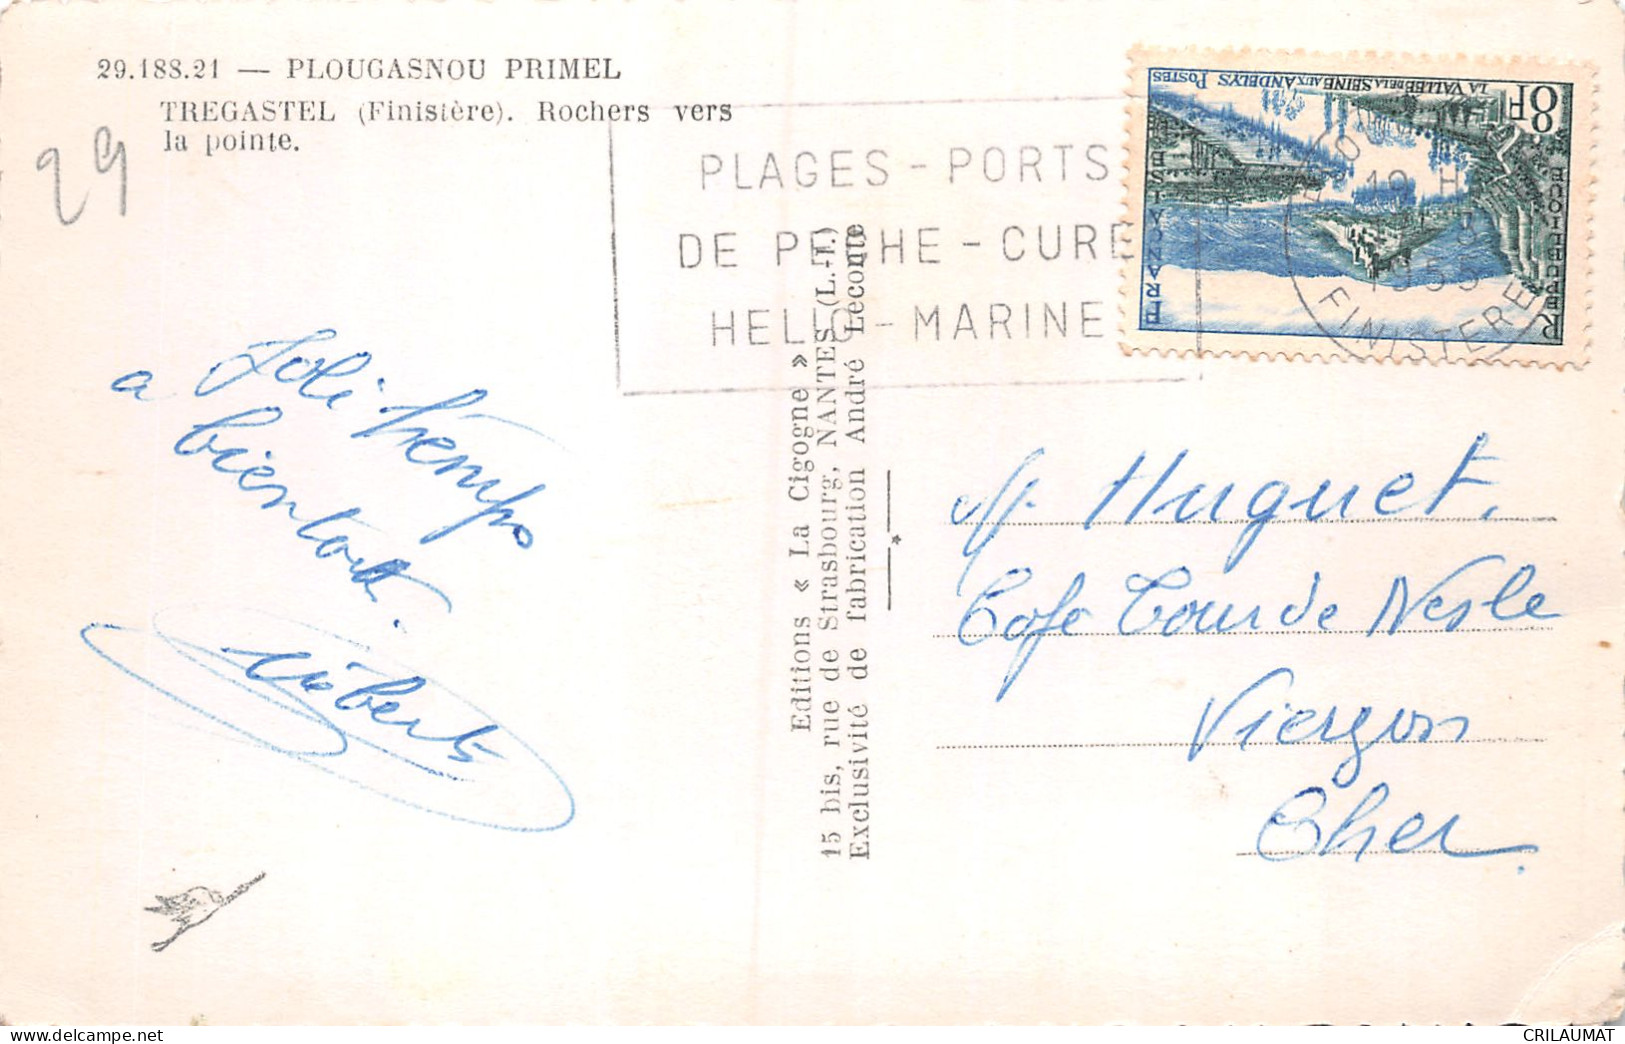 29.188.21 — PLOUGASNOU PRIMEL
TREGASTEL (Finistère). Rochers vers
la pointe.
29
PLAGES - PORTS
DE PECHE - CURE
HELIO - MARINE
LA VALLÉE DE LA SEINE AUX ANDELYS POSTES
8F
REPUBLIQUE FRANÇAISE
19 H
1955
FINISTERE
Joli temps
a bientôt.
Editions « La Cigogne »
15 bis, rue de Strasbourg, NANTES (L.-I.)
Exclusivité de fabrication André Leconte
M. Huguet.
Cafe Tour de Nesle
Vierzon
Cher.
CRILAUMAT